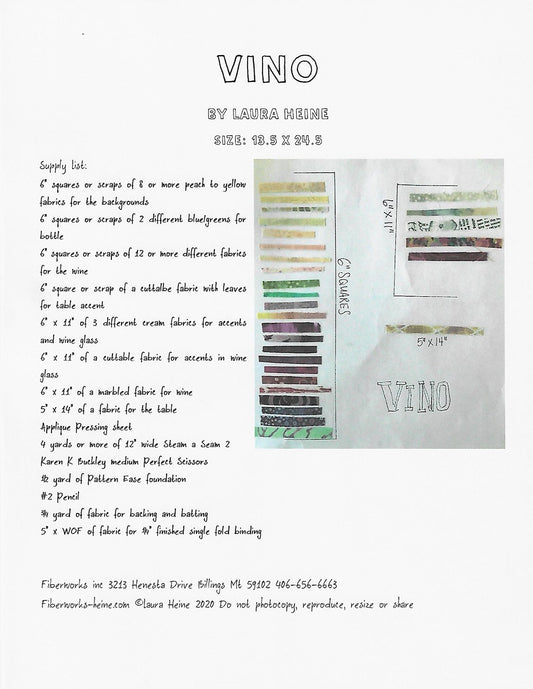 VINO
BY LAURA HEINE
SIZE: 13.5 X 24.5
Supply list:
6" squares or scraps of 8 or more peach to yellow
fabrics for the backgrounds
6" squares or scraps of 2 different blue/greens for
bottle
6" squares or scraps of 12 or more different fabrics
for the wine
6" square or scrap of a cuttalbe fabric with leaves
for table accent
6" x 11" of 3 different cream fabrics for accents
and wine glass
6" x 11" of a cuttable fabric for accents in wine
glass
6" x 11" of a marbled fabric for wine
5" x 14" of a fabric for the table
Applique Pressing sheet
4 yards or more of 12" wide Steam a Seam 2
Karen K Buckley medium Perfect Scissors
½ yard of Pattern Ease foundation
#2 Pencil
¾ yard of fabric for backing and batting
5" x WOF of fabric for ¼" finished single fold binding
6" SQUARES
6" X 11"
5" X 14"
VINO
Fiberworks inc 3213 Henesta Drive Billings Mt 59102 406-656-6663
Fiberworks-heine.com ©Laura Heine 2020 Do not photocopy, reproduce, resize or share